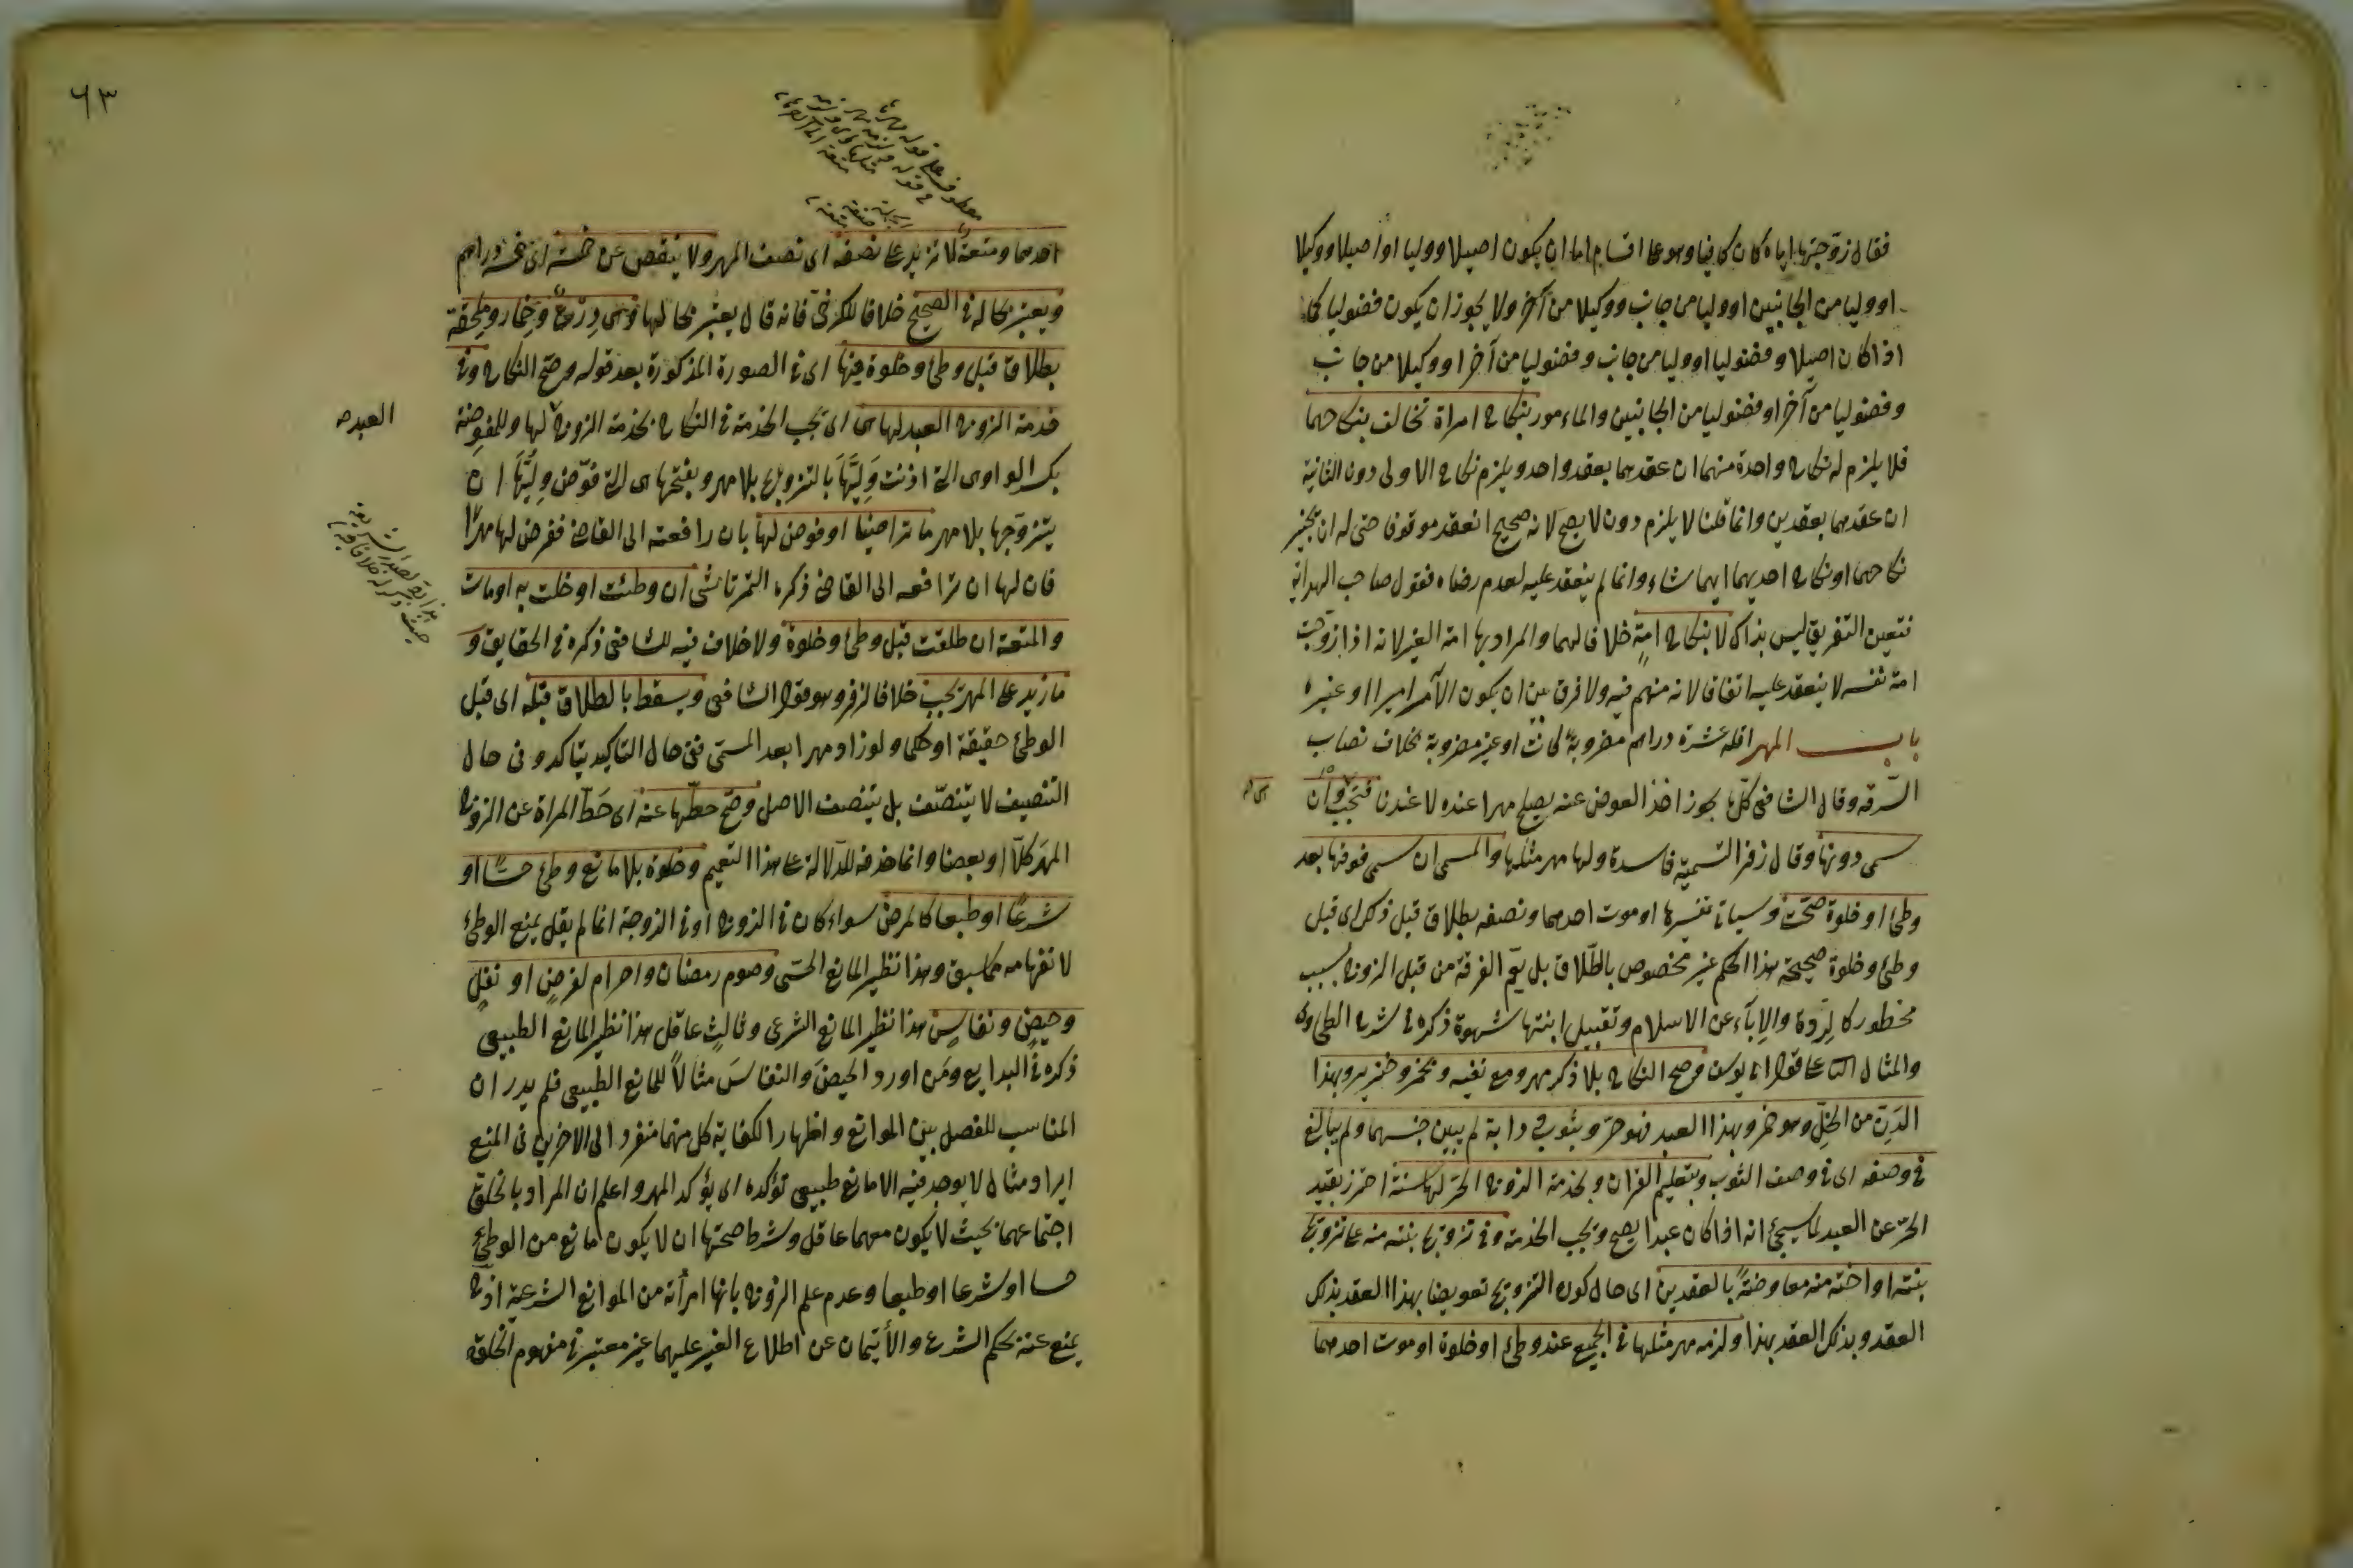 فقال زوّجتها اياه كان كافيا وهو على اقسام اما ان يكون اصيلا ووليا او اصيلا ووكيلا
او وليا من الجانبين او وليا من جانب ووكيلا من آخر ولا يجوز ان يكون فضوليا كما
اذا كان اصيلا وفضوليا او وليا من جانب وفضوليا من آخر او وكيلا من جانب
وفضوليا من آخر او فضوليا من الجانبين والمامور بنكاح امراة تخالف بنكاحهما
فلا يلزم له نكاح واحدة منهما ان عقدهما بعقد واحد ويلزم نكاح الاولى دون الثانية
ان عقدهما بعقدين وانما قلنا لا يلزم دون لا يصح لانه صحيح انعقد موقوفا حتى له ان يجيز
نكاحهما او نكاح احديهما ايهما شاء وانما لم ينعقد عليه لعدم رضاه فقول صاحب الهداية
فتعين التفريق ليس بذاك لا بنكاح امة خلافا لهما والمراد بها امة الغير لانه اذا زوجت
امة نفسه لا ينعقد عليه اتفاقا لانه متهم فيه ولا فرق بين ان يكون الآمر اميرا او غيره
باب المهر اقله عشرة دراهم مضروبة كانت او غير مضروبة بخلاف نصاب
السرقة وقال الشافعى كلّ ما يجوز اخذ العوض عنه يصلح مهرا عنده لا عندنا فتجب وان
سمى دونها وقال زفر التسمية فاسدة ولها مهر مثلها والمسمى ان سمى فوقها بعد
وطئ او خلوة صحّت وسياتى تفسيرها او موت احدهما ونصفه بطلاق قبل ذلك اى قبل
وطئ وخلوة صحيحة هذا الحكم غير مخصوص بالطّلاق بل يعمّ الفرقة من قبل الزوج بسبب
محظور كالرّدة والإبآء عن الاسلام وتقبيل ابنتها بشهوة ذكره فى شرح الطحاوى
والمثال على قول ابى يوسف وصح النكاح بلا ذكر مهر ومع نفيه وبخمر وخنزير وبهذا
الدّنّ من الخلّ وهو خمر وبهذا العبد فهو حرّ وبثوب ودابة لم يبين جنسهما ولم يبالغ
فى وصفه اى فى وصف الثوب وبتعليم القرآن وبخدمة الزوج الحرّ لها سنة احترز بقيد
الحرّ عن العبد لما سيجئ انه اذا كان عبدا يصح وتجب الخدمة وفى تزويج بنته منه على تزويج
بنته او اخته منه معاوضةً بالعقدين اى حال كون التزويج تعويضا بهذا العقد بذلك
العقد وبذلك العقد بهذا ولزمه مهر مثلها فى الجميع عند وطئ او خلوة او موت احدهما
٦٣
احدهما ومتعة لا تزيد على نصفه اى نصف المهر ولا ينقص عن خمسة اى خمسة دراهم
ويعتبر بحاله فى الصحيح خلافا للكرخىّ فانه قال يعتبر بحالها وهى دِرْعٌ وخِمار ومِلحفة
بطلاق قبل وطئ وخلوة فيها اى فى الصورة المذكورة بعد قوله وصحّ النكاح وفى
خدمة الزوج العبد لها هى اى تجب الخدمة فى النكاح بخدمة الزوج لها وللمفوضة
العبد صح
بكسر الواو اى التى اذنت وليّها بالتزويج بلا مهر وبفتحها اى التى فوّض وليّها ان
يتزوجها بلا مهر ما تراضيا او فرض لها بان رافعته الى القاضى ففرض لها مهرًا
فان لها ان ترافعه الى القاضى ذكره التمرتاشى ان وطئت او خلت به او مات
والمتعة ان طلقت قبل وطئ وخلوة ولا خلاف فيه للشافعى ذكره فى الحقايق و
ما زيد على المهر يجب خلافا لزفر وهو قول الشافعى ويسقط بالطلاق قبله اى قبل
الوطئ حقيقة او حكما ولو زاد مهرا بعد المسمّى ففى حال التاكيد يتاكد وفى حال
التنصيف لا يتنصّف بل يتنصف الاصل وصحّ حطّها عنه اى حَطّ المراة عن الزوج
المهرَ كلّا او بعضا وانما حذفه للدّلالة على هذا التعميم وخلوة بلا مانع وطئ حسًّا او
شرعًا او طبعا كالمرض سواء كان فى الزوج او فى الزوجة انما لم يقل يمنع الوطئ
لانفهامه مما سبق وهذا نظير المانع الحسّى وصوم رمضان واحرام لفرضٍ او نفلٍ
وحيضٍ ونفاسٍ هذا نظير المانع الشرعى وثالثٍ عاقل هذا نظير المانع الطبيعى
ذكره فى البدايع ومَن اورد الحيضَ والنفاسَ مثالًا للمانع الطبيعى فلم يدر ان
المناسب للفصل بين الموانع واظهار الكفاية كل منها منفردا الى الآخرين فى المنع
ايراد مثال لا يوجد فيه الا مانع طبيعى تؤكده اى يؤكد المهر واعلم ان المراد بالخلوة
اجتماعهما بحيث لا يكون معهما عاقل وشرط صحتها ان لا يكون مانع من الوطئ
حسا او شرعا او طبعا وعدم علم الزوج بانها امرأته من الموانع الشرعية اذ
يمنع عنه بحكم الشرع والأيتمان عن اطلاع الغير عليهما غير معتبر فى مفهوم الخلوة